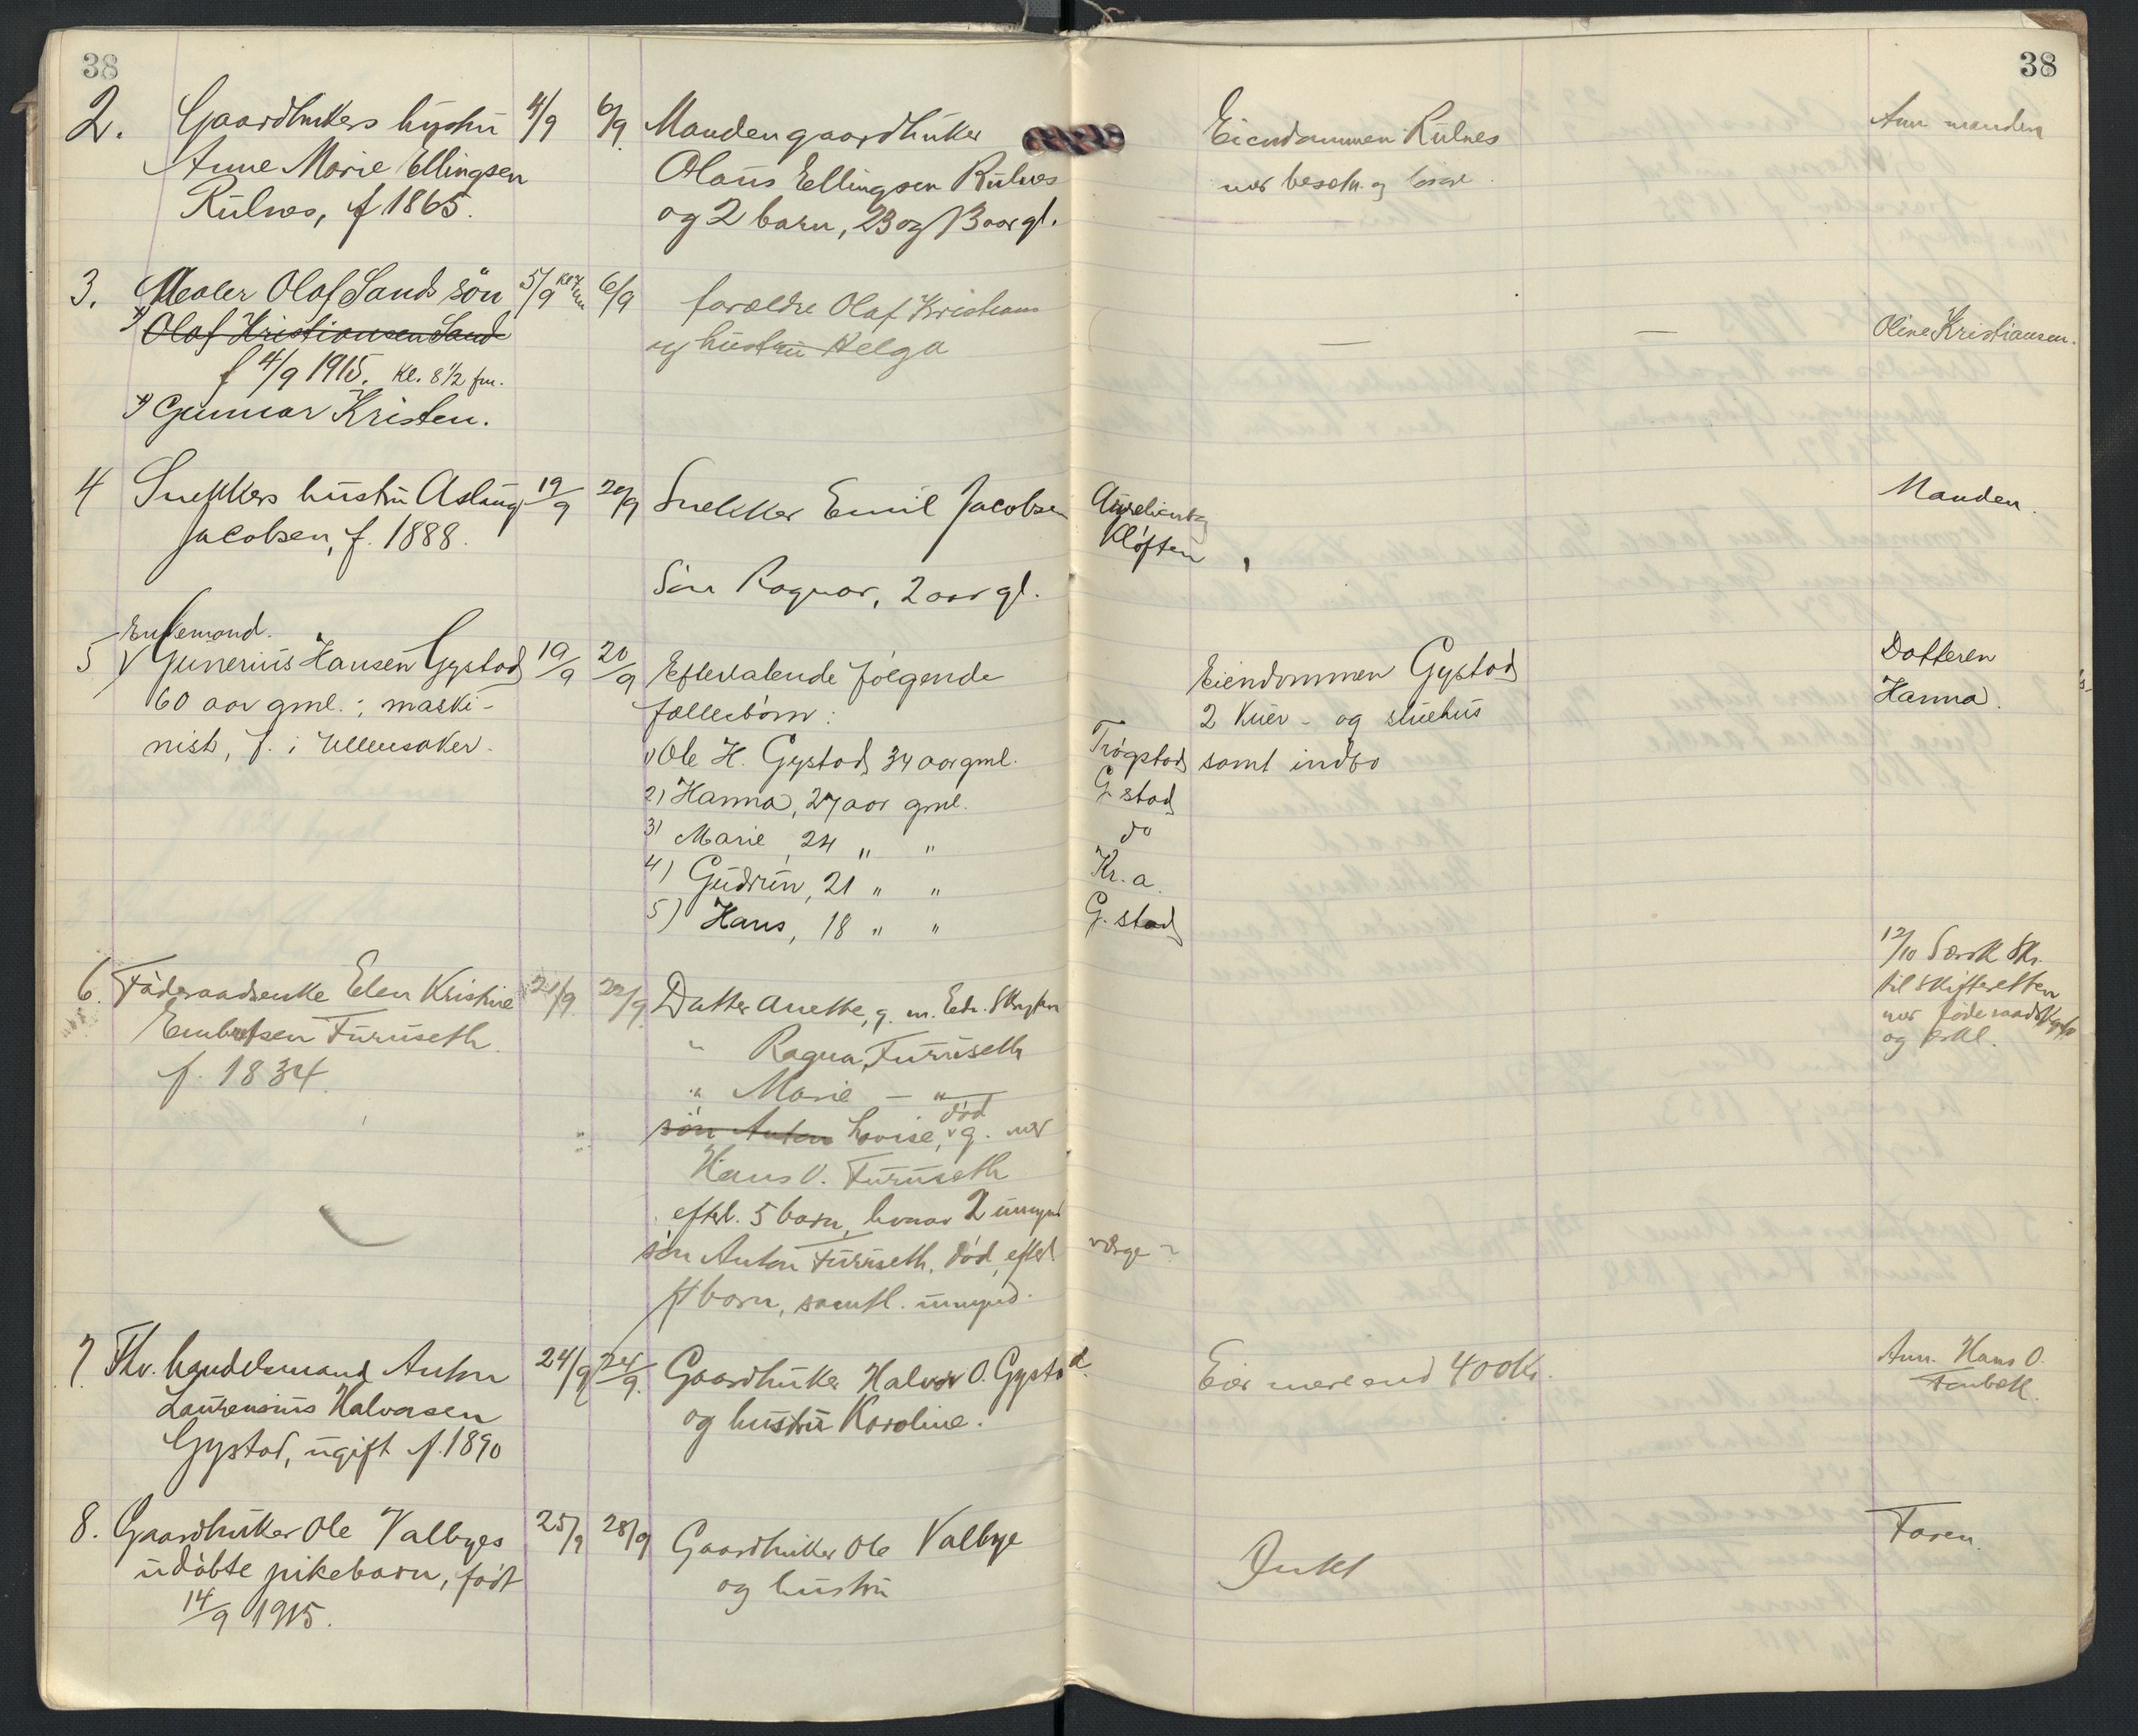 38
38
2. Gaardbrukers hustru 4/9 6/9 Manden gaardbruker Eiendommen Rulnes Anm. manden
Anne Marie Ellingsen Olaus Ellingsen Rulnes
Rulnes, f 1865. og 2 barn, 23 og 13 aar gl.
3. Maler Olaf Sands søn 5/9 6/9 forældre Olaf Kristians — — Oline Kristiansen.
Olaf Kristiansen Sand og hustru Helga
f 4/9 1915. kl. 8 1/2 fm.
Gunnar Kristen.
4 Snekkers hustru Aslaug 19/9 20/9 Snekker Emil Jacobsen Manden.
Jacobsen, f. 1888. Kløften
Søn Ragnar, 2 aar gl.
Enkemand.
5 Gunerius Hansen Gystad 19/9 20/9 Efterlatende følgende Eiendommen Gystad Datteren
60 aar gml.; maski- fællesbörn: 2 kuer - og stuehus Hanna.
nist, f. i Ullensaker. 1) Ole H. Gystad 34 aar gml. Trøgstad samt indbo
2) Hanna, 27 aar gml. G.stad
3) Marie, 24 " " do
4) Gudrun, 21 " " Kr.a.
5) Hans, 18 " " G.stad
6. Föderaadsenke Elen Kristine 21/9 22/9 Datter Anette, g. m. 12/10 Særsk skr.
Embretsen Furuseth " Ragna Furuseth til skifteretten
f. 1834. " Marie — " — og
søn Anton Lovise, død g. med
Hans O. Furuseth
efterl. 5 barn, hvorav 2 umynd
søn Anton Furuseth, död, efterl. værge
4 barn, samtl. umynd.
7. Fhv. handelsmand Anton 24/9 24/9. Gaardbruker Halvor O. Gystad. Eier mere end 400 Kr. Anm. Hans O.
Laurensius Halvorsen og hustru Karoline.
Gystad, ugift f. 1890
8. Gaardbruker Ole Valbyes 25/9 28/9 Gaardbruker Ole Valbye Intet Faren.
udöbte pikebarn, födt og hustru
14/9 1915.